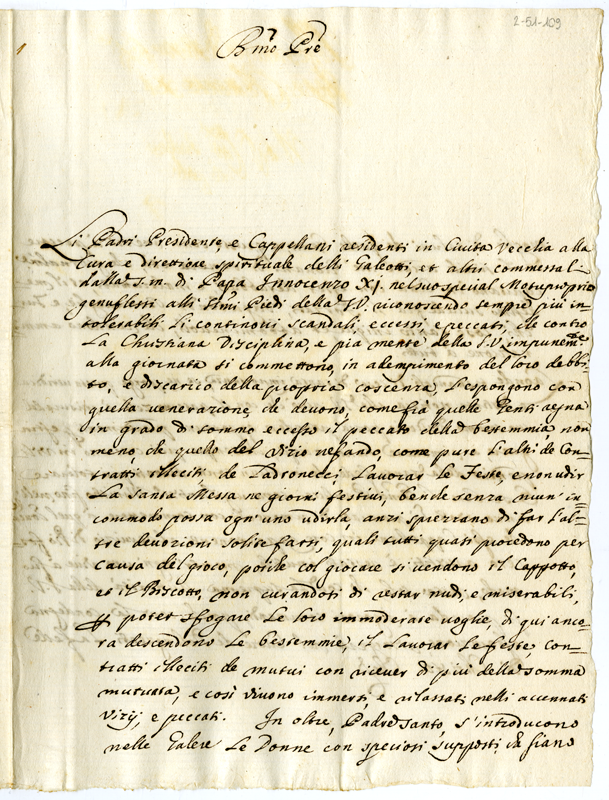 2-51-109
Bmo Pre
Li Padri Presidente, e Cappellani residenti in Civita Vecchia alla
Cura e direttione spirituale delli Galeotti, et altri commessa l.
dalla s. m. di Papa Innocenzo XI. nel suo special Motuproprio
genuflessi alli Smi Piedi della S. V. riconoscendo sempre più in=
tolerabili li continovi scandali, eccessi, e peccati, che contro
La Christiana Disciplina, e pia mente della S. V. impunemte
alla giornata si commettono, in adempimento del loro debbi=
to, e discarico della propria coscenza, l'espongono con
quella veneratione, che devono, come frà quelle Genti regna
in grado di sommo eccesso il peccato della bestemmia, non
meno, che quello del vizio nefando, come pure l'altri de Con=
tratti illeciti, de Ladronecci, Lavorar le Feste, e non udir
La Santa Messa ne giorni festivi, benche senza niun' in=
commodo possa ogn'uno udirla, anzi sprezzano di far l'al=
tre devozioni solite farsi, quali tutti quasi procedono per
causa del gioco, poiche col giocare si vendono il Cappotto,
et il Biscotto, non curandosi di restar nudi, e miserabili,
p poter sfogare le loro immoderate voglie, di qui anco=
ra descendono le bestemmie, il Lavorar le feste, con=
tratti illeciti de mutui con ricever di più della somma
mutuata, e così vivono immersi, e rilassati nelli accennati
Vizij, e peccati. In oltre, Padre Santo, s'introducono
nelle Galere le Donne con speciosi supposti, che siano